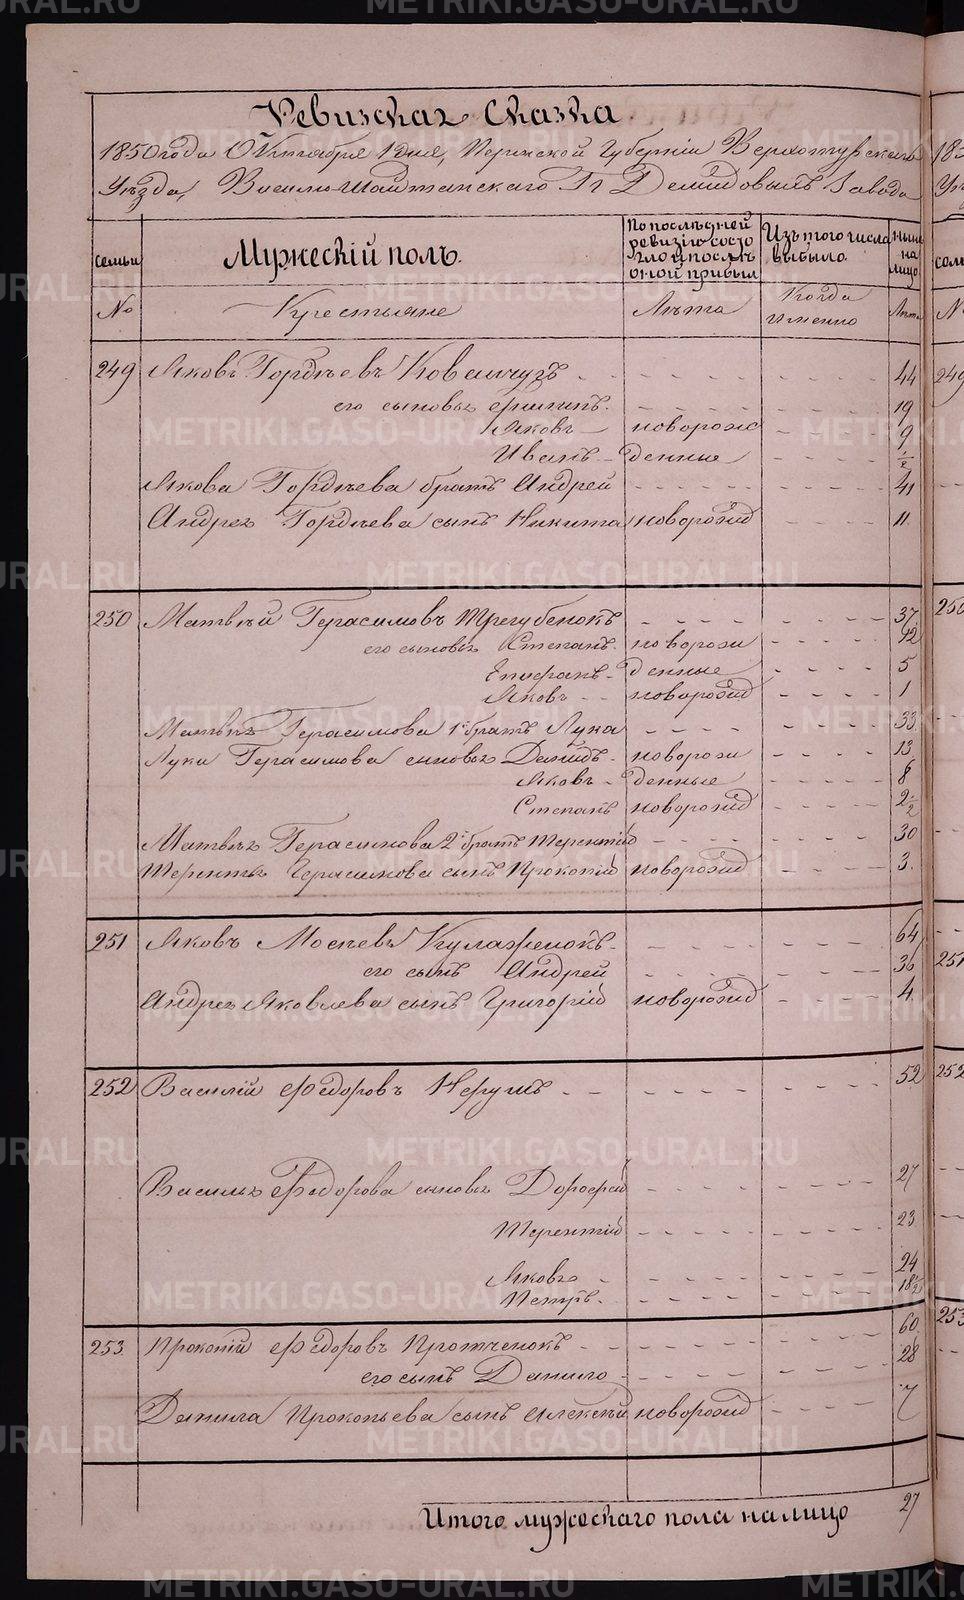 Ревизская Сказка
1850 года Октября 1 дня, Пермской Губернии Верхотурскаго
Уѣзда, Висимо-Шайтанскаго Гг Демидовыхъ Завода
семьи
Мужескій полъ.
По послѣдней
ревизіи состо
яло и послѣ
оной прибыл
Изъ того числа
выбыло.
ныне
на
лицо.
№
Крестьяне
Лѣта
Когда
именно
Лѣта
249 Яковъ Гордѣевъ Ковальчугъ 44
его сыновья 19
Яковъ новорож 9
Иванъ денные 1/2
Якова Гордѣева братъ Андрей 41
Андрея Гордѣева сынъ Никита новорожд 11
250 Матвѣй Герасимовъ Трегубенокъ 37
его сыновья Степанъ новорож 12
Епифанъ денные 5
Яковъ новорожд 1
Матвѣя Герасимова 1й братъ Лука 33
Луки Герасимова сыновья Давидъ новорож 13
Яковъ денные 8
Степанъ новорожд 2 1/2
Матвѣя Герасимова 2й братъ Терентій 30
Терентья Герасимова сынъ Прокопій новорожд 3.
251 Яковъ Мосѣевъ Кулаженокъ 64
его сынъ Андрей 36
Андрея Яковлева сынъ Григорій новорожд 4
252 Василій Федоровъ Нерушъ 52
Василья Федорова сыновья Дорофей 27
Терентій 23
Яковъ 24
Петръ 18 1/2
253 Прокопій Федоровъ Протченокъ 60
его сынъ Данило 28
Данила Прокопьева сынъ Алексѣй новорожд 7
Итого мужескаго пола налицо 27
METRIKI.GASO-URAL.RU